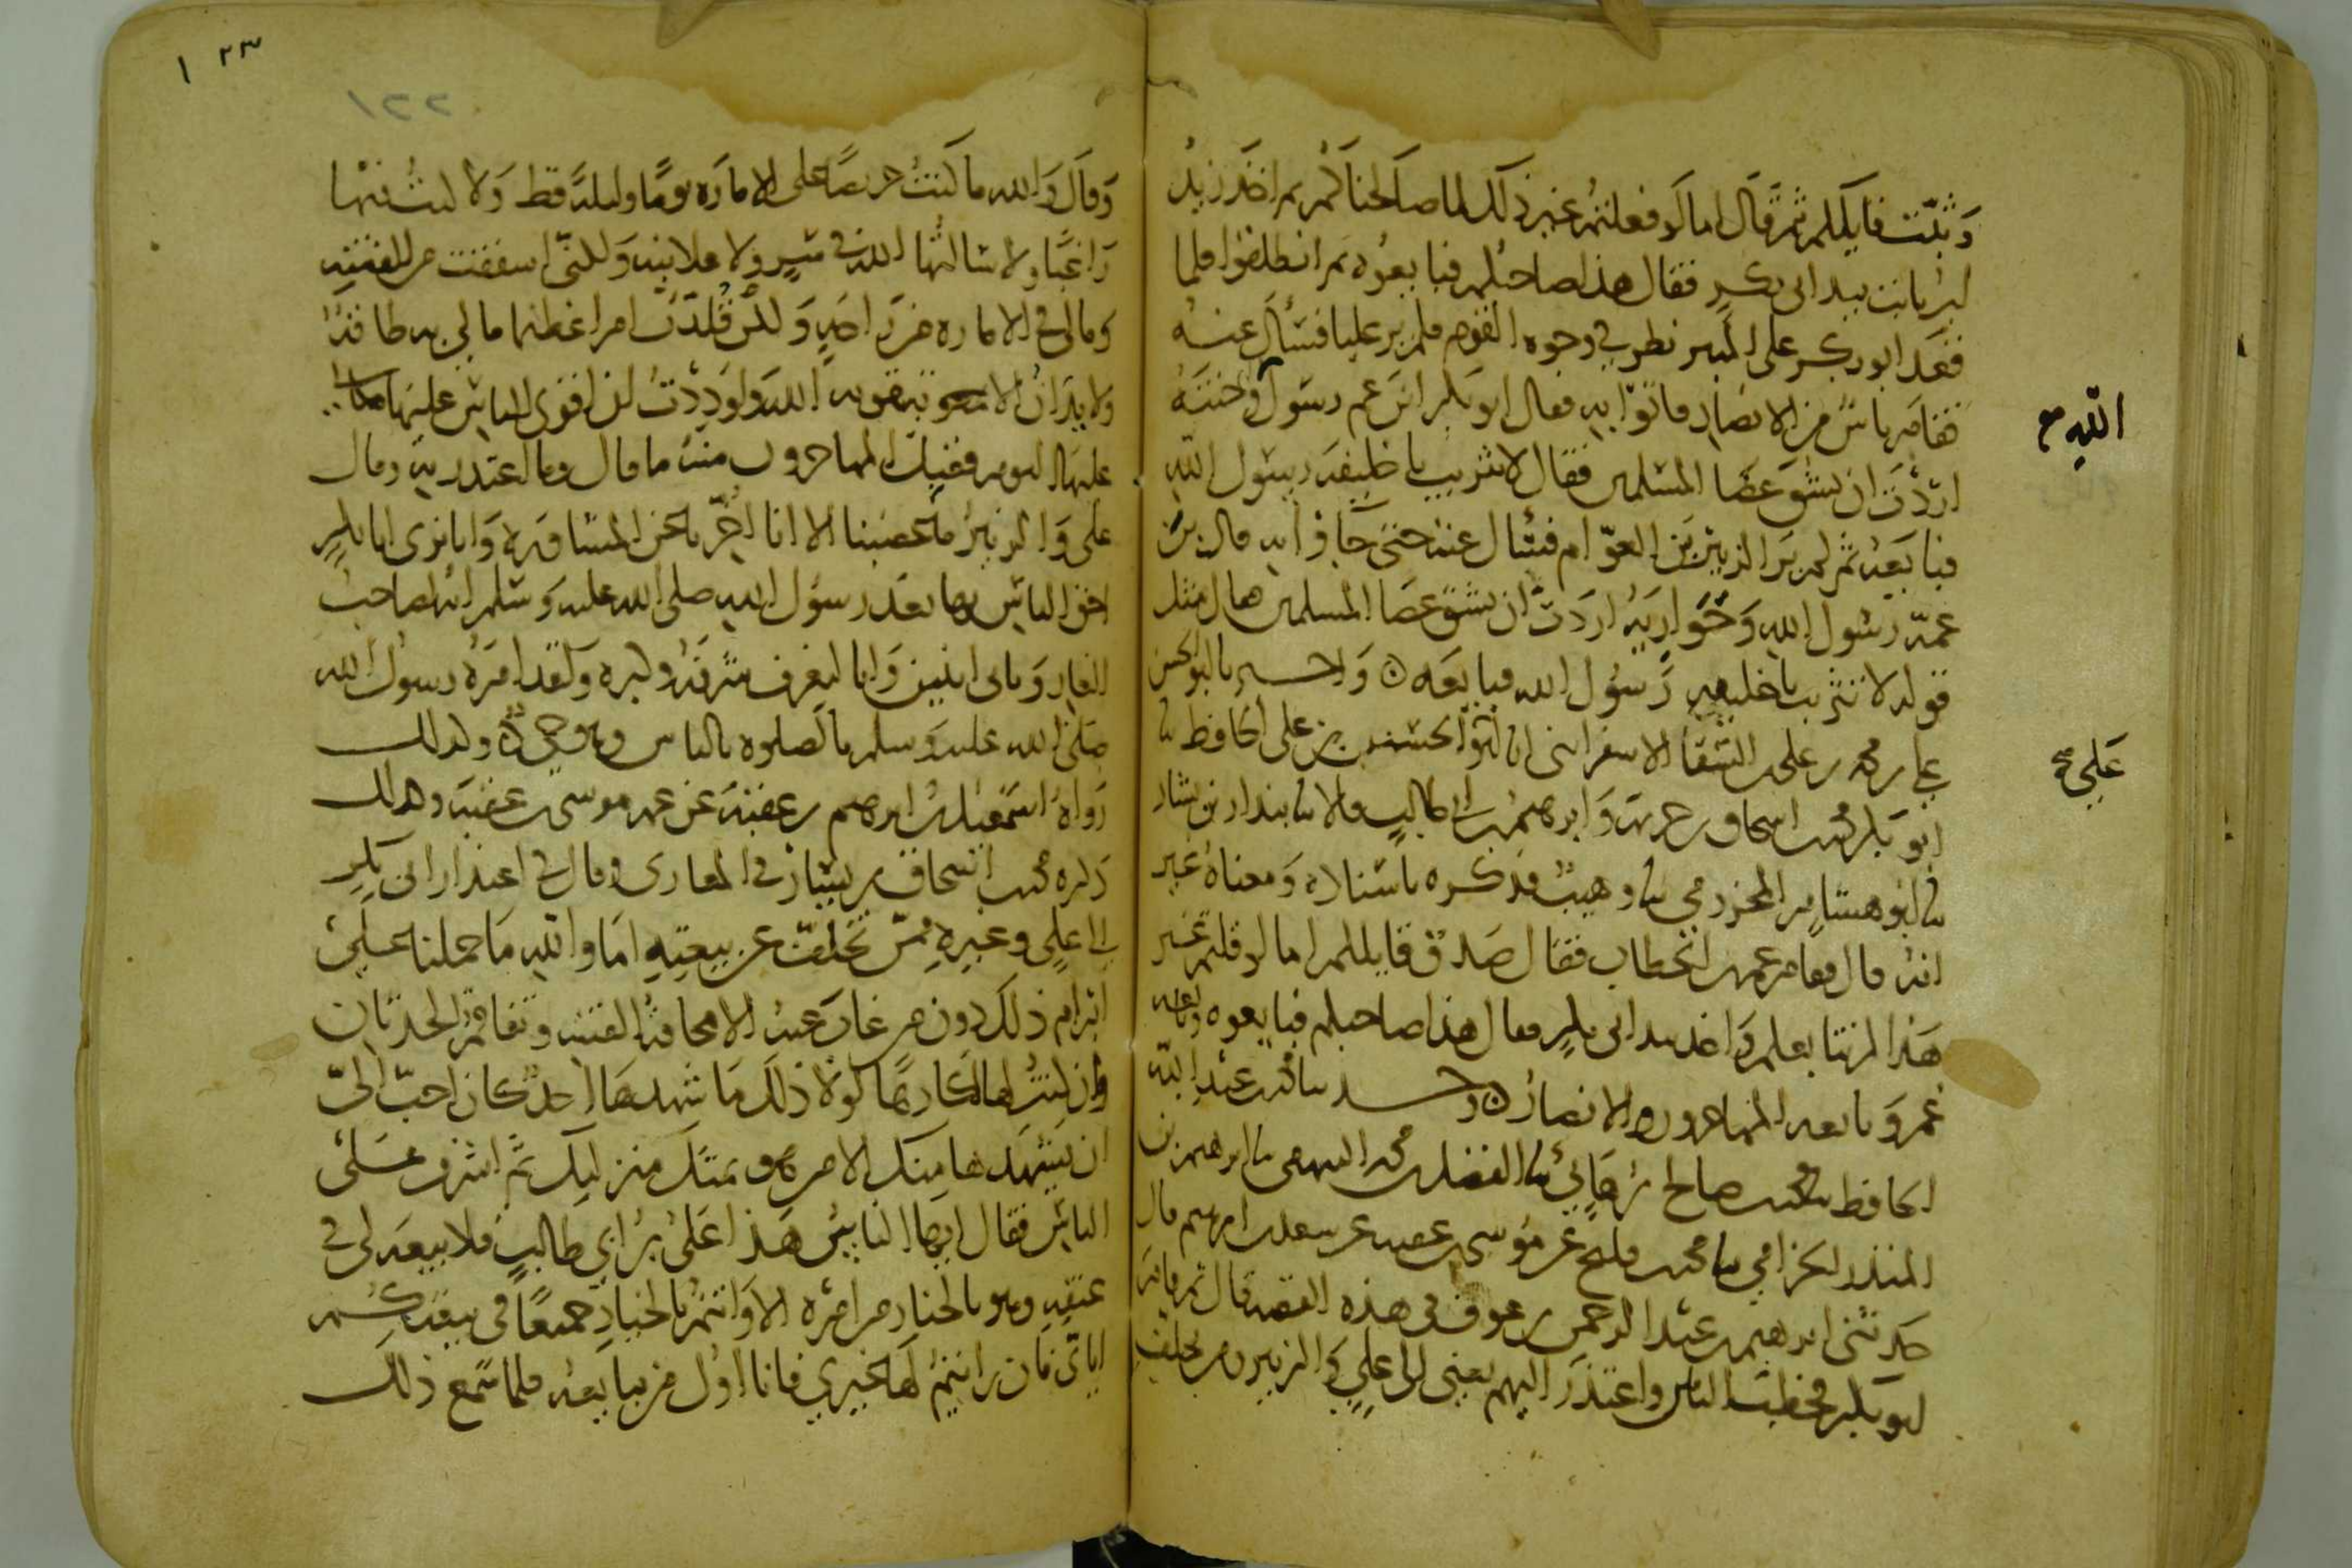 وَثبّت قايلكم ثم قال اما لو فعلتم غير ذلك لما صالحناكم ثم اخذ زيد
ابن ثابت بيد ابي بكر فقال هذا صاحبكم فبايعوه ثم انطلقوا فلما
قعد ابو بكر على المنبر نظر في وجوه القوم فلم ير عليا فسأل عنه
فقام ناس من الانصار فاتوا به فقال ابو بكر ابن عم رسول وختنه
الله صح
اردت ان تشق عصا المسلمين فقال لا تثريب يا خليفة رسول الله
فبايعه ثم لم ير الزبير بن العوام فسال عنه حتى جاؤا به فقال بن
عمة رسول الله وحواريه اردت ان تشق عصا المسلمين فقال مثل
قوله لا تثريب يا خليفة رسول الله فبايعه ٥ واخبرنا ابو الحسن
علي بن محمد بن علي السقا الاسفرايني انا ابو الحسين بن علي الحافظ نا
علي صح
ابو بكر محمد بن اسحاق بن خزيمة وابرهيم بن ابي طالب قالا نا بندار بن بشار
نا ابو هشام المخزومي نا وهيب فذكره باسناده ومعناه غير
انه قال فقام عمر بن الخطاب فقال صدق قايلكم اما لو قلتم غير
هذا لم نتابعكم واخذ بيد ابي بكر فقال هذا صاحبكم فبايعوه وبايعه
عمر وبايعه المهاجرون والانصار ٥ وحدثنا محمد بن عبد الله
الحافظ نا محمد بن صالح بن هاني نا الفضل بن محمد البيهقي نا ابرهيم بن
المنذر الحزامي نا محمد بن فليح عن موسى بن عقبة عن سعد بن ابرهيم قال
حدثني ابرهيم بن عبد الرحمن بن عوف في هذه القصة قال ثم قام
ابو بكر فخطب الناس واعتذر اليهم يعني الى علي والزبير ومن تخلف
١٢٣
١٢٢
وقال والله ما كنت حريصا على الامارة يوما وليلة قط ولا كنت فيها
راغبا ولا سالتها الله في سر ولا علانية ولكني اشفقت من الفتنة
وما لي في الامارة من راحة ولكن قلدت امرا عظيما ما لي به طاقة
ولا يدان الا بتقوية الله ولوددت ان اقوى الناس عليها مكاني
عليها اليوم فقبل المهاجرون منه ما قال وما اعتذر به وقال
علي والزبير ما غضبنا الا انا اخرنا عن المشاورة وانا نرى ابا بكر
احق الناس بها بعد رسول الله صلى الله عليه وسلم انه لصاحب
الغار وثاني اثنين وانا لنعرف شرفه وكبره ولقد امره رسول الله
صلى الله عليه وسلم بالصلوة بالناس وهو حي ٥ وكذلك
رواه اسمعيل بن ابرهيم بن عقبة عن عمه موسى بن عقبة وكذلك
ذكره محمد بن اسحاق بن يسار في المغازي وقال في اعتذار ابي بكر
الى علي وغيره ممن تخلف عن بيعته اما والله ما حملنا على
ابرام ذلك دون من غاب عنه الا مخافة الفتنة وتفاقم الحدثان
وان كنت لها لكارها لولا ذلك ما شهدها احد كان احب الي
ان يشهدها منك الا من هو بمثل منزلتك ثم اشرف على
الناس فقال ايها الناس هذا علي بن ابي طالب فلا بيعة لي في
عنقه وهو بالخيار من امره الا وانتم بالخيار جميعا في بيعتكم
اياي فان رايتم لها غيري فانا اول من يبايعه فلما سمع ذلك